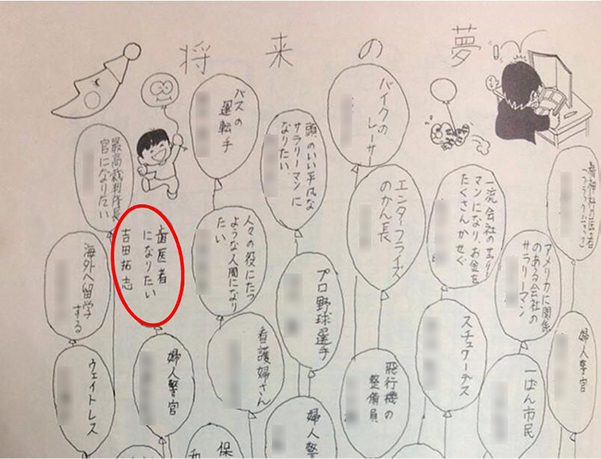 将来の夢
精神科の医者
アメリカに関係
のある会社の
サラリーマン
婦人警官
マンになり、お金を
たくさんかせぐ
スチュワーデス
一ぱん市民
バイクの
レーサー
エンタープライズ
のかん長
飛行機の
整備員
頭のいい平凡な
サラリーマンに
なりたい
プロ野球選手
婦人警
バスの
運転手
人々の役にたつ
ような人間になり
たい
看護婦さん
保
歯医者
になりたい
吉田拓志
婦人警官
最高裁判所長
官になりたい
海外へ留学
する
ウェイトレス